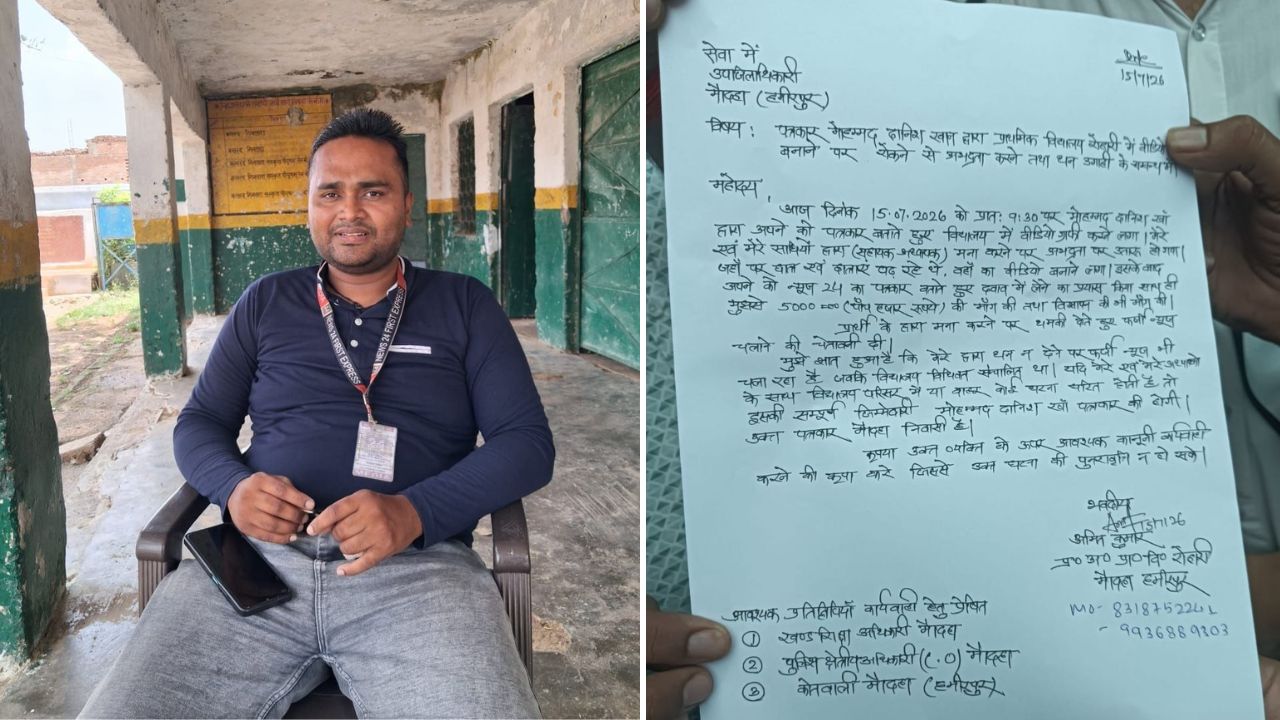 NEWS 24 FIRST EXPRESS
NEWS 24 FIRST EXPRESS
सेवा में
Date
15/7/26
उपजिलाधिकारी
मौदहा (हमीरपुर)
विषय : पत्रकार मोहम्मद दानिश खान द्वारा प्राथमिक विद्यालय में वीडियो
बनाने पर रोकने से अभद्रता करने तथा धन उगाही के सम्बन्ध में
महोदय,
आज दिनांक 15.07.2026 को प्रातः 9:30 पर मोहम्मद दानिश खाँ
द्वारा अपने को पत्रकार बताते हुए विद्यालय में वीडियो ग्राफी करने लगा। मेरे
एवं मेरे साथियों द्वारा (सहायक अध्यापक) मना करने पर अभद्रता पर उतारू हो गए।
जहाँ पर छात्र एवं छात्राए पढ़ रहे थे, वहाँ का वीडियो बनाने लगा। इसके बाद
अपने को न्यूज 24 का पत्रकार बताते हुए दबाव में लेने का प्रयास किया साथ ही
मुझसे 5000=00 (पाँच हजार रूपये) की माँग की तथा विज्ञापन की भी माँग की।
प्रार्थी के द्वारा मना करने पर धमकी देते हुए फर्जी न्यूज
चलाने की चेतावनी दी।
मुझे ज्ञात हुआ है कि मेरे द्वारा धन न देने पर फर्जी न्यूज भी
चला रहा है जबकि विद्यालय विधिवत संचालित था। यदि मेरे एवं मेरे अध्यापको
के साथ विद्यालय परिसर में या बाहर कोई घटना घटित होती है तो
इसकी सम्पूर्ण जिम्मेदारी मोहम्मद दानिश खाँ पत्रकार की होगी।
उक्त पत्रकार मौदहा निवासी है।
कृपया उक्त व्यक्ति के ऊपर आवश्यक कानूनी कार्यवाही
करने की कृपा करे जिससे उक्त घटना की पुनरावृत्ति न हो सके।
भवदीय
15/7/26
अमित कुमार
प्र० अ० प्रा० वि०
मौदहा हमीरपुर
Mo- 8318752241
- 9936889303
आवश्यक प्रतिलिपियाँ कार्यवाही हेतु प्रेषित
① खण्ड शिक्षा अधिकारी मौदहा
② पुलिस क्षेत्रीय अधिकारी (C.O) मौदहा
③ कोतवाली मौदहा (हमीरपुर)